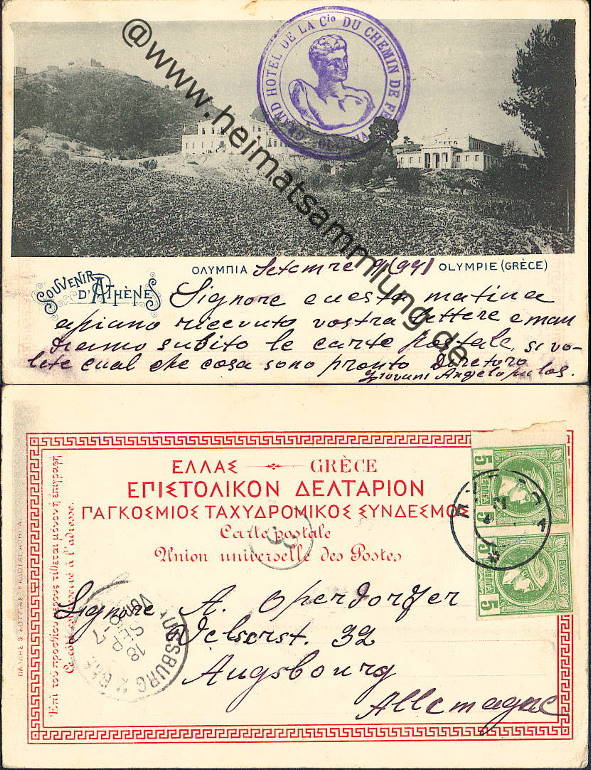 @www.heimatsammlung.de
GRAND HOTEL DE LA Cie DU CHEMIN DE
SOUVENIR D'ATHÈNES
ΟΛΥΜΠΙΑ
OLYMPIE (GRÈCE)
Signore questa matina
apiano ricevuto vostra lettere e man
diamo subito le carte postale si vo-
lete cual che cosa sono pronto Diretore
Giovani Angelopulos.
ΕΛΛΑΣ GRÈCE
ΕΠΙΣΤΟΛΙΚΟΝ ΔΕΛΤΑΡΙΟΝ
ΠΑΓΚΟΣΜΙΟΣ ΤΑΧΥΔΡΟΜΙΚΟΣ ΣΥΝΔΕΣΜΟΣ
Carte postale
Union universelle des Postes
5
5
5
5
Signore A. Operdorfer
32
Augsbourg
Allemagne
AUGSBURG
18
SEP